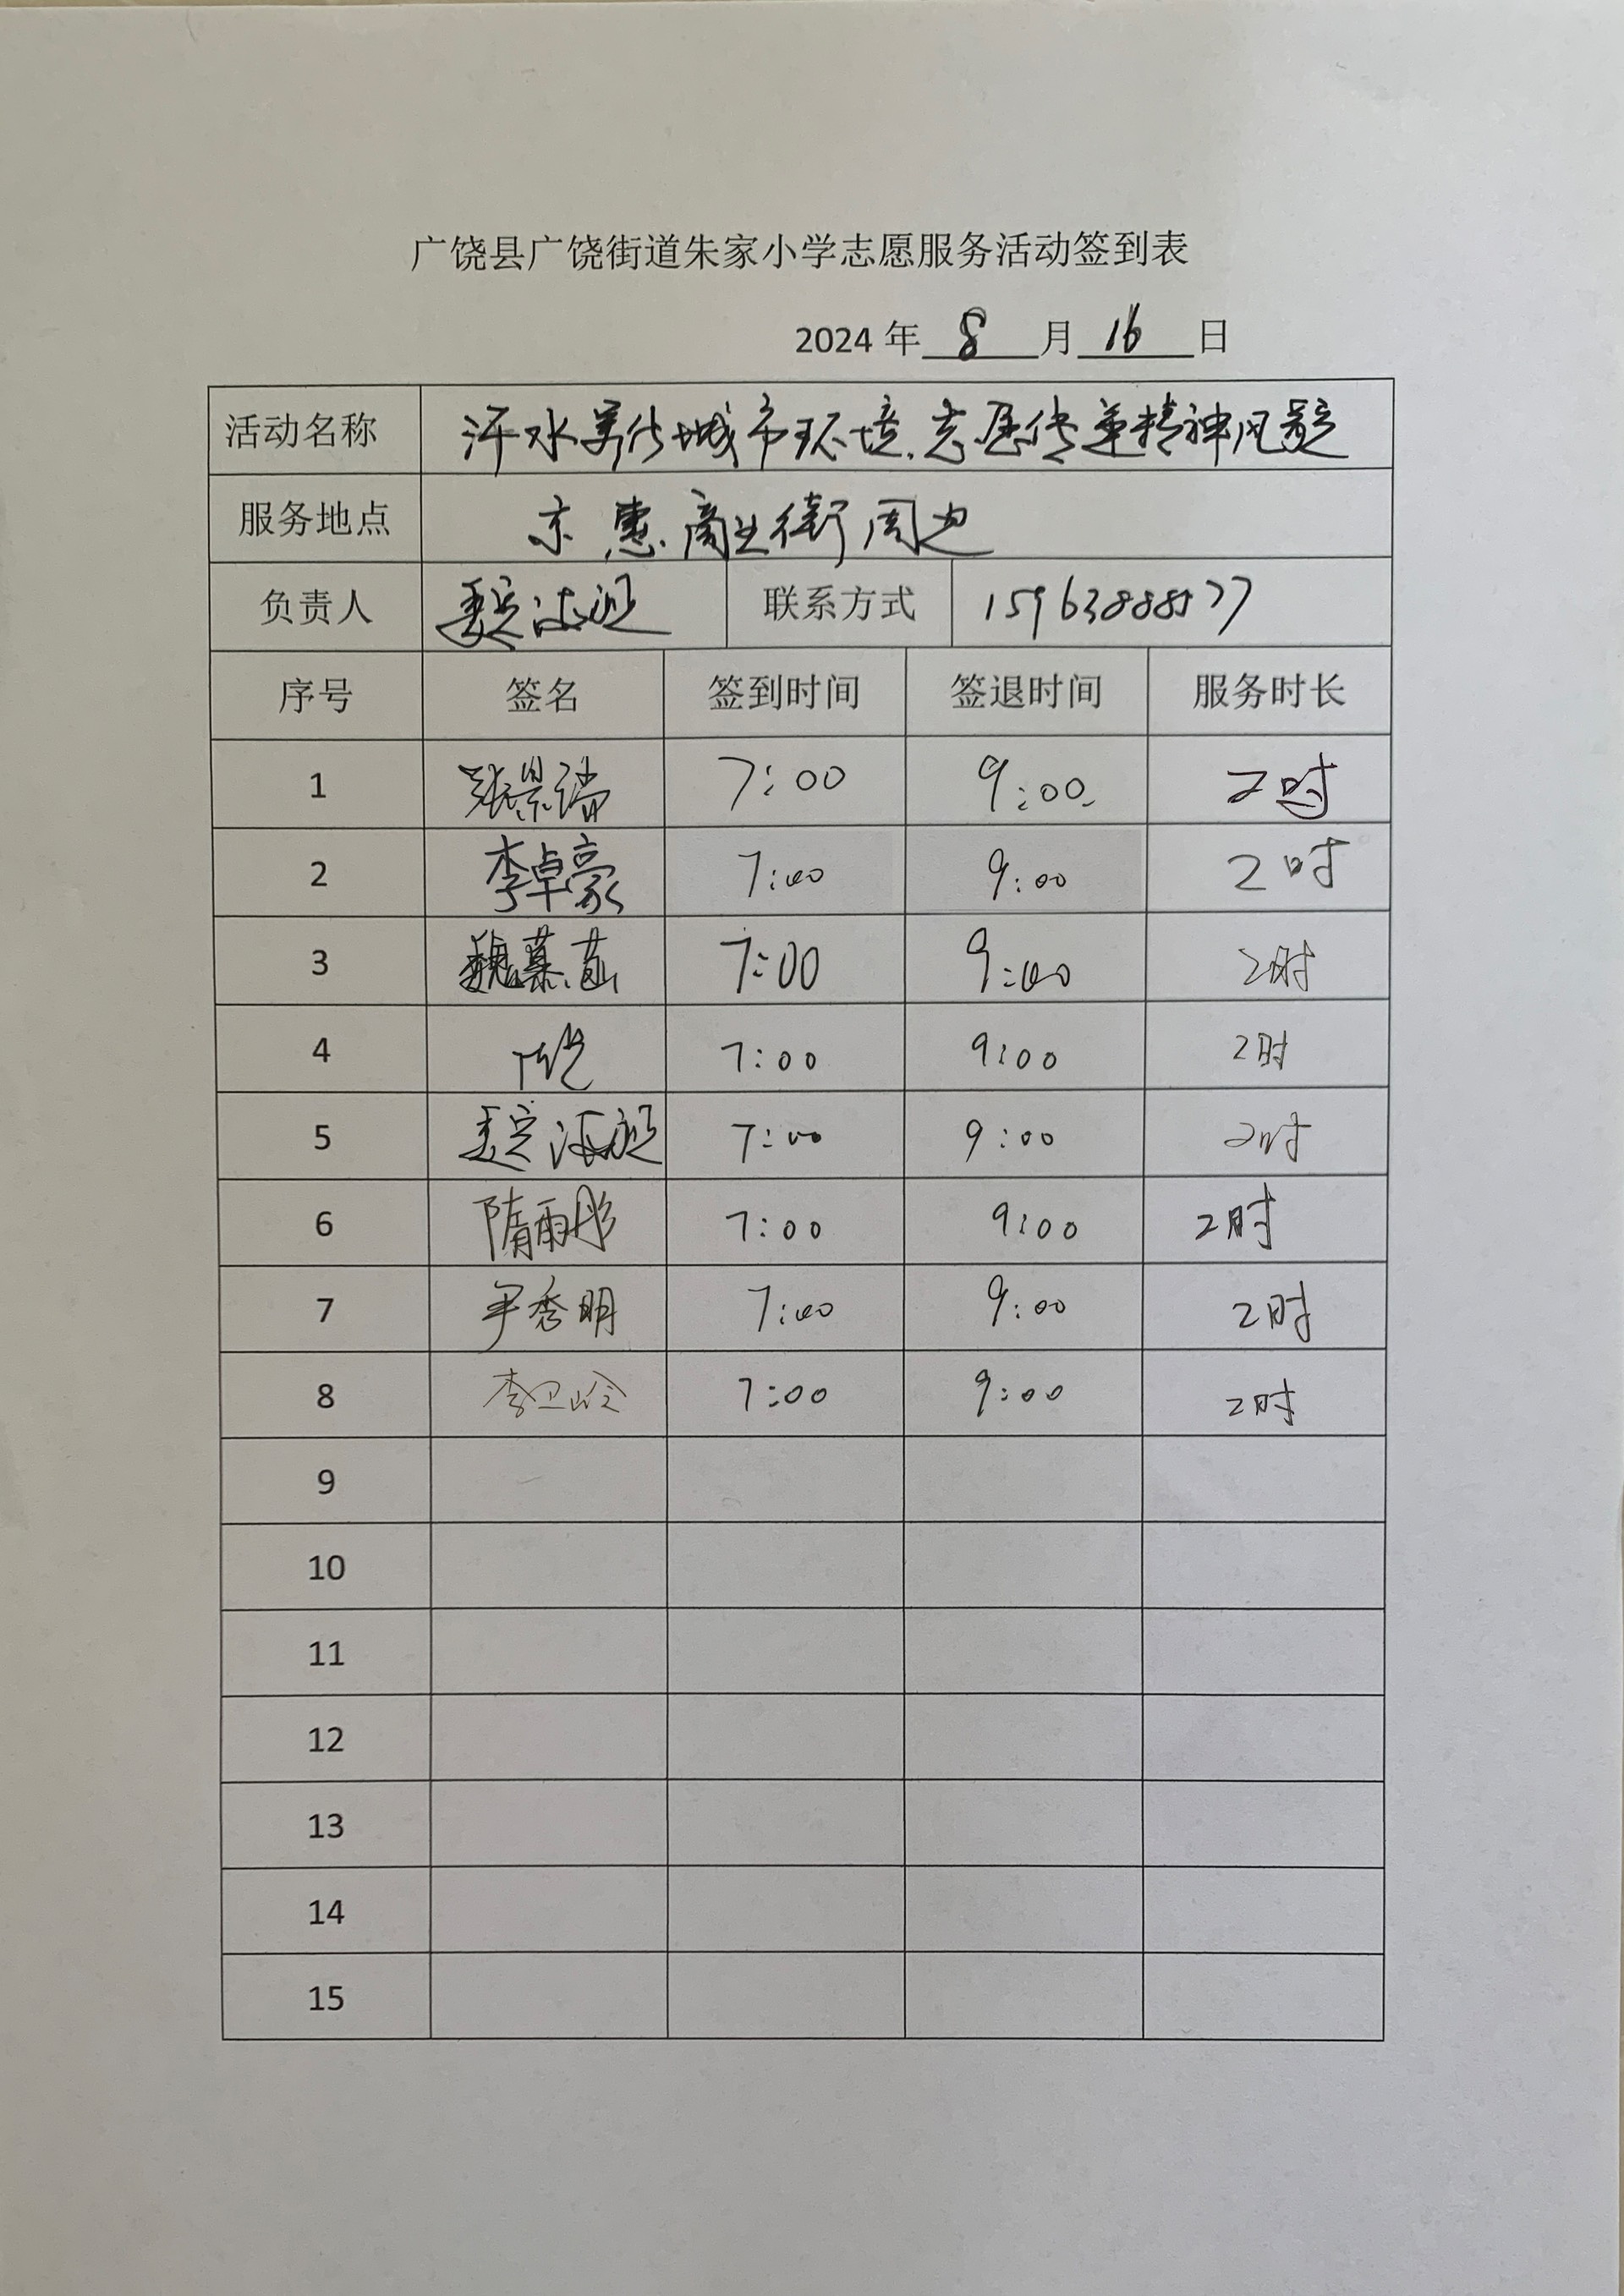 广饶县广饶街道朱家小学志愿服务活动签到表
2024年 8 月 16 日
活动名称 汗水美化城市环境,志愿传递精神风貌
服务地点 京惠商业街周边
负责人 联系方式 15963888577
序号 签名 签到时间 签退时间 服务时长
1 张景瑞 7:00 9:00 2时
2 李卓豪 7:00 9:00 2时
3 魏慕菡 7:00 9:00 2时
4 7:00 9:00 2时
5 7:00 9:00 2时
6 隋雨彤 7:00 9:00 2时
7 尹秀明 7:00 9:00 2时
8 李卫玲 7:00 9:00 2时
9
10
11
12
13
14
15